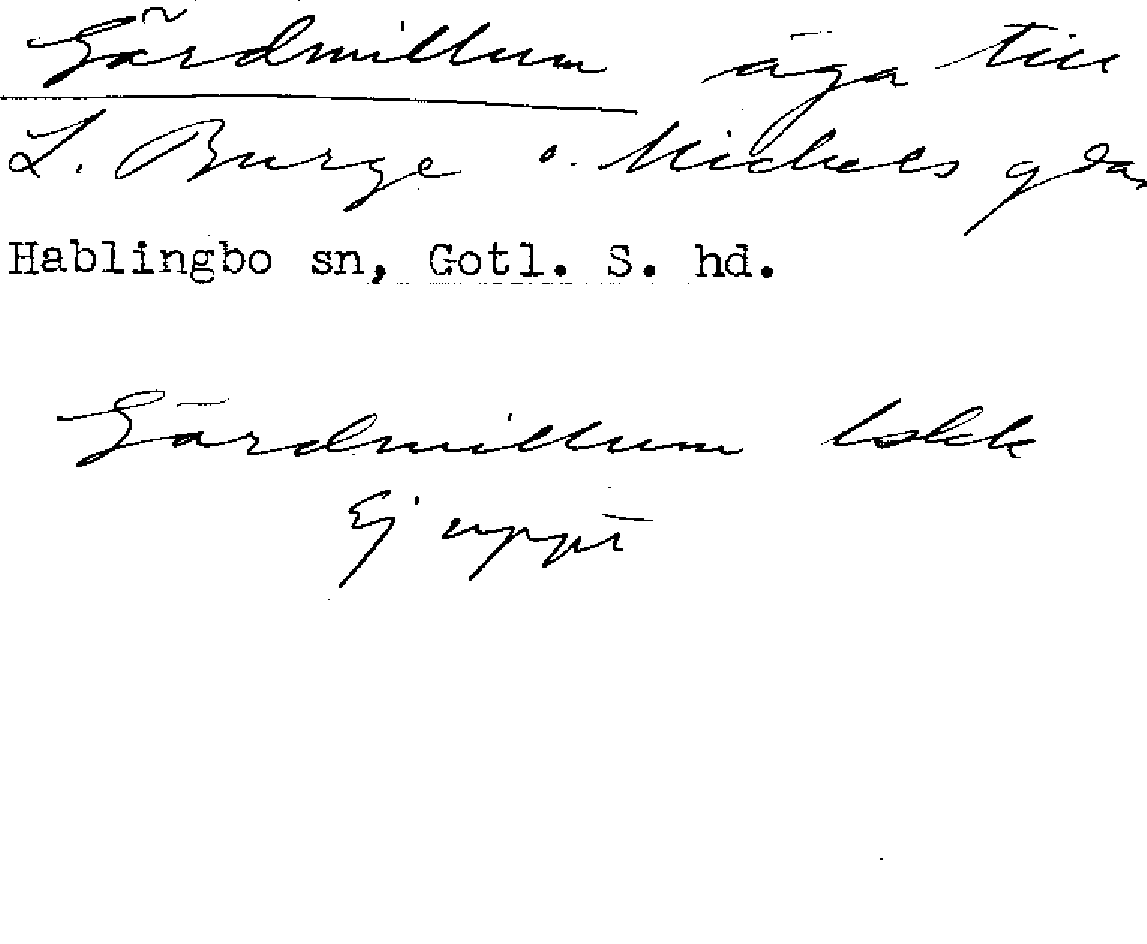 Gärdmillum äga till
L. Burge o. Mickels gdar
Hablingbo sn, Gotl. S. hd.
Gärdmillum
Ej uppt